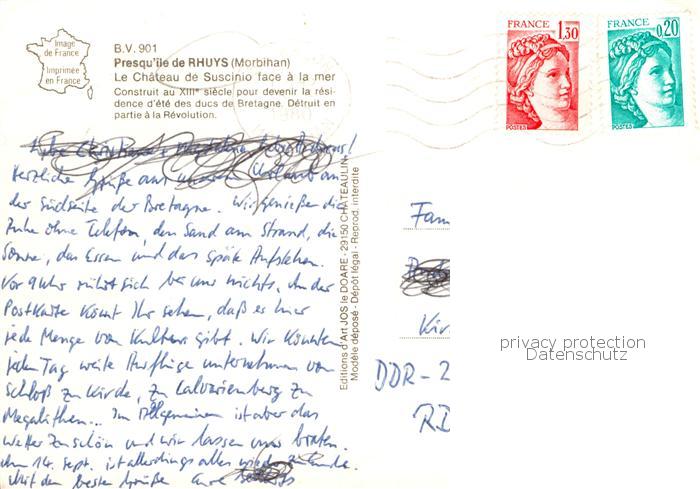 Image
de France
Imprimée
en France
B.V. 901
Presqu'île de RHUYS (Morbihan)
Le Château de Suscinio face à la mer
Construit au XIIIe siècle pour devenir la rési-
dence d'été des ducs de Bretagne. Détruit en
partie à la Révolution.
FRANCE
1,30
POSTES
FRANCE
0,20
POSTES
Herzliche Grüße aus unserem Urlaub an
der Südseite der Bretagne. Wir genießen die
Ruhe ohne Telefon, den Sand am Strand, die
Sonne, das Essen und das späte Aufstehen.
Vor 9 Uhr rührt sich bei uns nichts. An der
Postkarte könnt Ihr sehen, daß es hier
jede Menge von Kultur gibt. Wir könnten
jeden Tag weite Ausflüge unternehmen von
Schloß zu Kirche, zu Calvarienberg zu
Megalithen... Im Allgemeinen ist aber das
Wetter zu schön und wir lassen uns braten.
Am 14. Sept. ist allerdings alles wieder zu Ende.
Mit den besten Grüße Eure
Editions d'Art JOS le DOARE - 29150 CHATEAULIN
Modèle déposé - Dépôt légal - Reprod. interdite
Fam
Kir
DDR - 2
privacy protection
Datenschutz